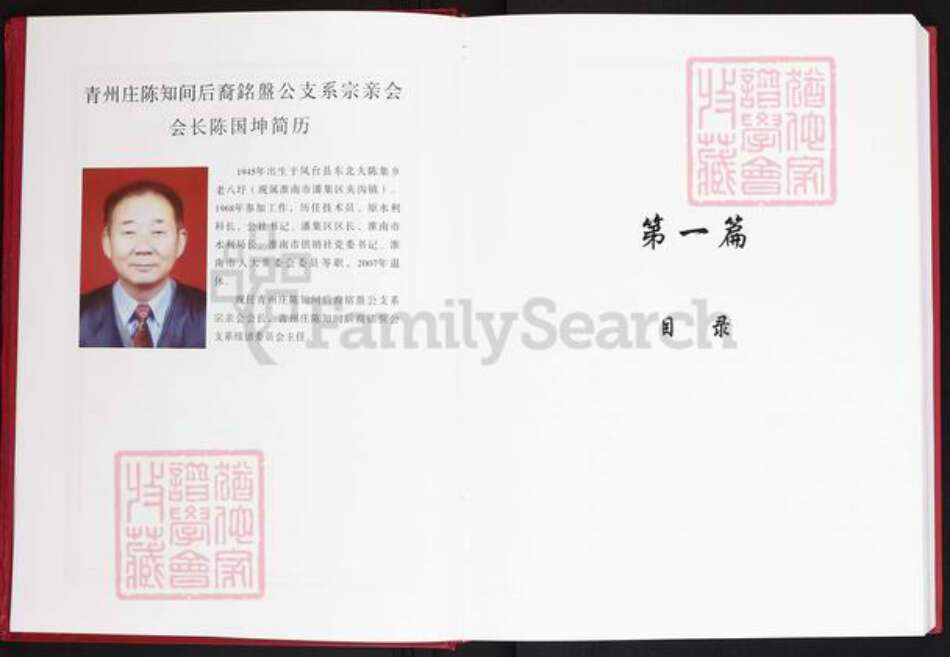 青州庄陈知间后裔銘盤公支系宗亲会
会长陈国坤简历
1945年出生于凤台县东北大陈集乡
老八圩(现属淮南市潘集区夹沟镇)。
1968年参加工作,历任技术员、原水利
科长、公社书记、潘集区区长、淮南市
水利局长、淮南市供销社党委书记、淮
南市人大常委会委员等职。2007年退
休。
现任青州庄陈知间后裔銘盤公支系
宗亲会会长、青州庄陈知间后裔銘盤公
支系续谱委员会主任
猶他家
譜學會
收藏
第一篇
目 录
猶他家
譜學會
收藏
FamilySearch